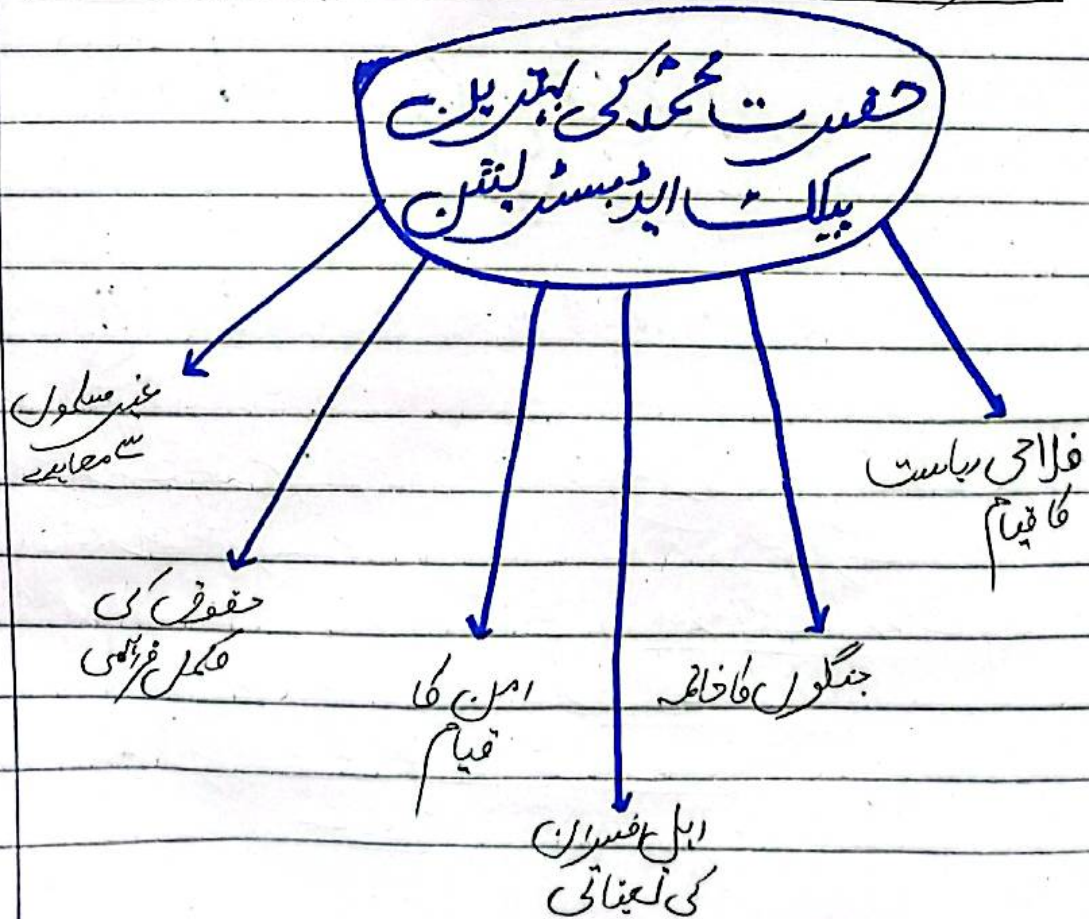 حضرت محمدؐ کی بہترین
پبلک ایڈمنسٹریشن
فلاحی ریاست
کا قیام
جنگوں کا خاتمہ
اہل افسران
کی تعیناتی
امن کا
قیام
حقوق کی
مکمل فراہمی
غیر مسلموں
سے معاہدے